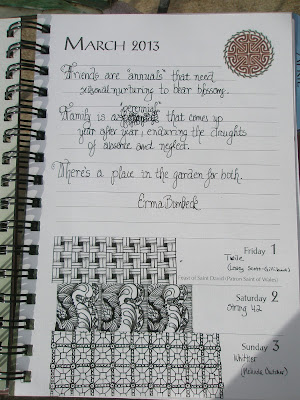 MARCH 2013
Friends are "annuals" that need
seasonal nurturing to bear blossoms.
"perennial"
Family is a that comes up
year after year, enduring the droughts
of absence and neglect.
There's a place in the garden for both.
Erma Bombeck
Friday 1
Feast of Saint David (Patron Saint of Wales)
Saturday 2
String 42
Sunday 3
Whittier